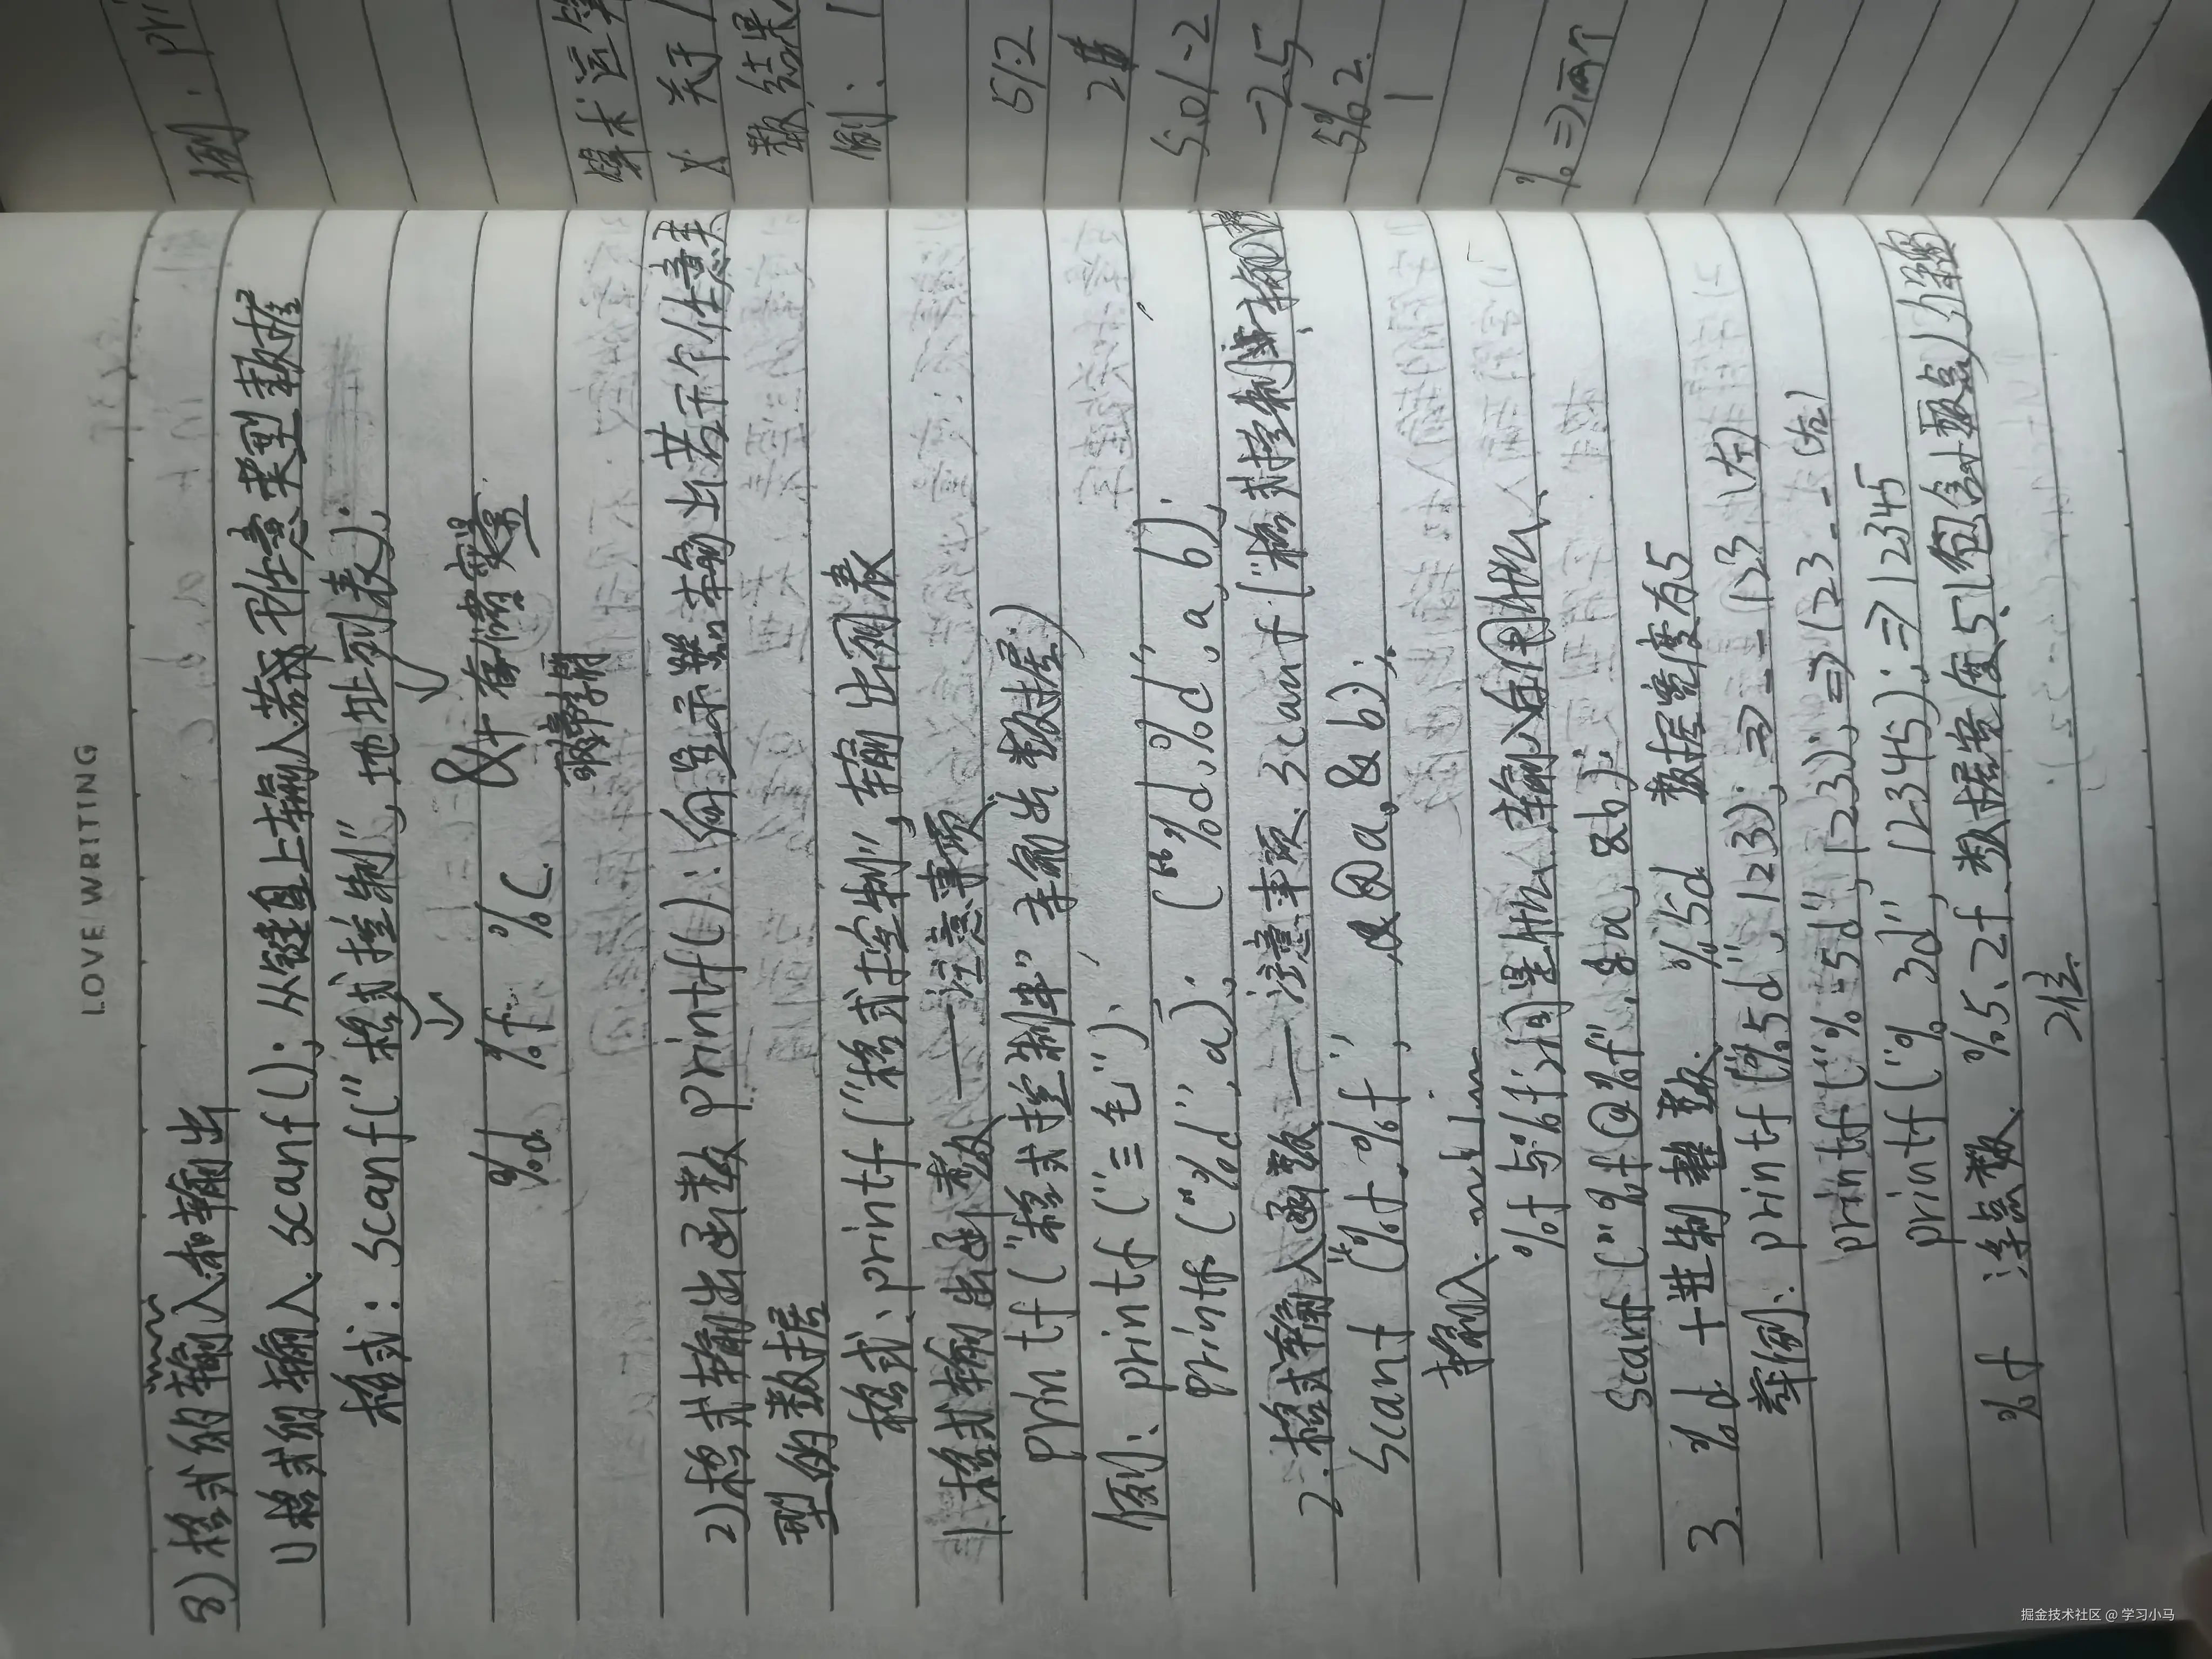 LOVE WRITING
8) 格式的输入和输出
1) 格式的输入. scanf(): 从键盘上输入若干任意类型数据
格式: scanf("格式控制", 地址列表);
%d %f %c
&+存储变量
取
2) 格式输出函数 printf(): 向显示器输出若干个任意类
型的数据
格式: printf("格式控制", 输出列表
1. 格式输出函数——注意事项
printf("格式控制串" 输出数据)
例: printf("三毛");
printf("%d", a); ("%d,%d", a, b);
2. 格式输入函数——注意事项、scanf("格式控制
scanf("%f,%f", &a, &b);
输入.
%f与%f之间是什么输入自用什么
scanf("%f@%f", &a, &b);
3. %d 十进制整数. %5d 数据宽度为5
举例: printf("%5d", 123); ⇒ _ _ 123 (右)
printf("%-5d", 123); ⇒ 123 _ _ (左)
printf("%3d", 12345); ⇒ 12345
%f 浮点数. %5.2f 数据宽度5(包含小数点)
2位.
例: pri
算术运算
关于 /
数, 结果
例: 1
5/2
2
5.0/-2
-2.5
5%2
1
% ⇒ 两个
掘金技术社区 @ 学习小马